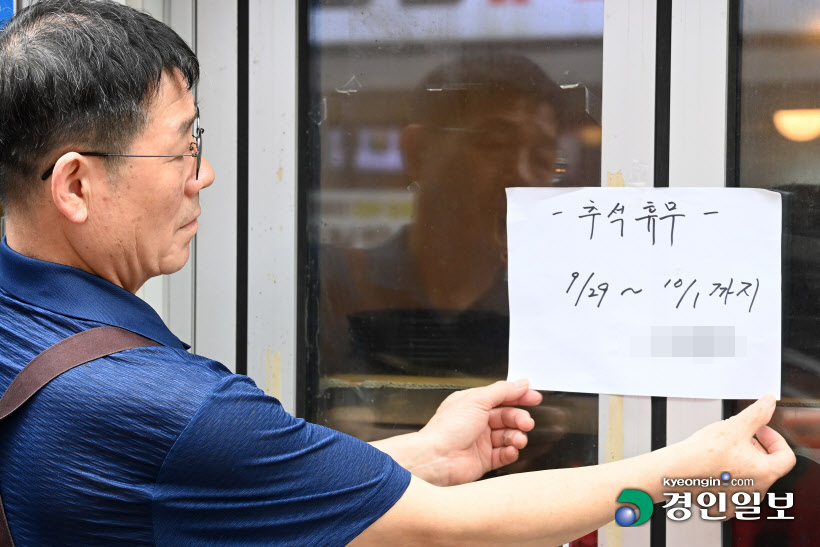 - 추석 휴무 -
9/29 ~ 10/1 까지
kyeongin.com
경인일보